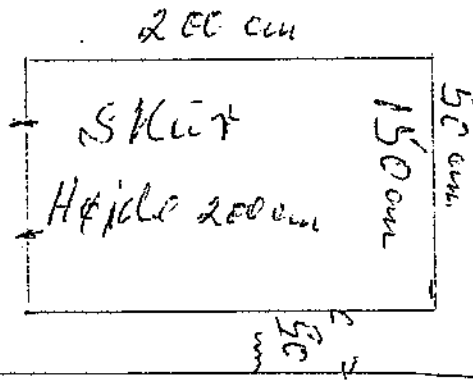 200 cm
Skur
Højde 200 cm
150 cm
50 cm.
50